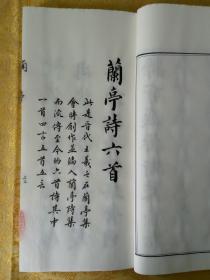 蘭亭詩六首
此是晉代王羲之在蘭亭集
會時創作並編入蘭亭詩集
而流傳至今的六首詩其中
一首四言五首五言
蘭亭